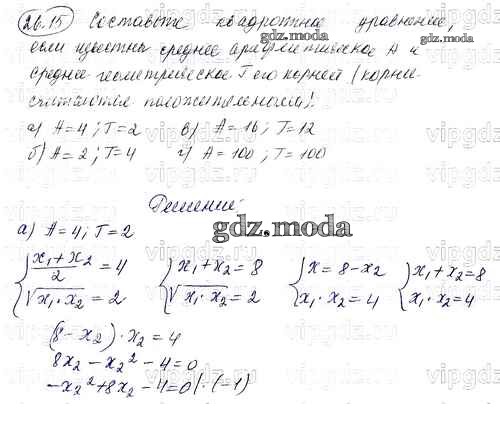 26.15 Составьте квадратное уравнение,
если известны среднее арифметическое A и
среднее геометрическое Г его корней (корни
считаются положительными).
а) A=4; Г=2 в) A=16; Г=12
б) A=2; Г=4 г) A=100; Г=100
Решение:
gdz.moda
а) A=4; Г=2
{ (x₁+x₂)/2 = 4 { x₁+x₂=8 { x=8-x₂ { x₁+x₂=8
√(x₁·x₂) = 2 √(x₁·x₂) = 2 x₁·x₂=4 x₁·x₂=4
(8-x₂)·x₂=4
8x₂-x₂²-4=0
-x₂²+8x₂-4=0 |·(-1)